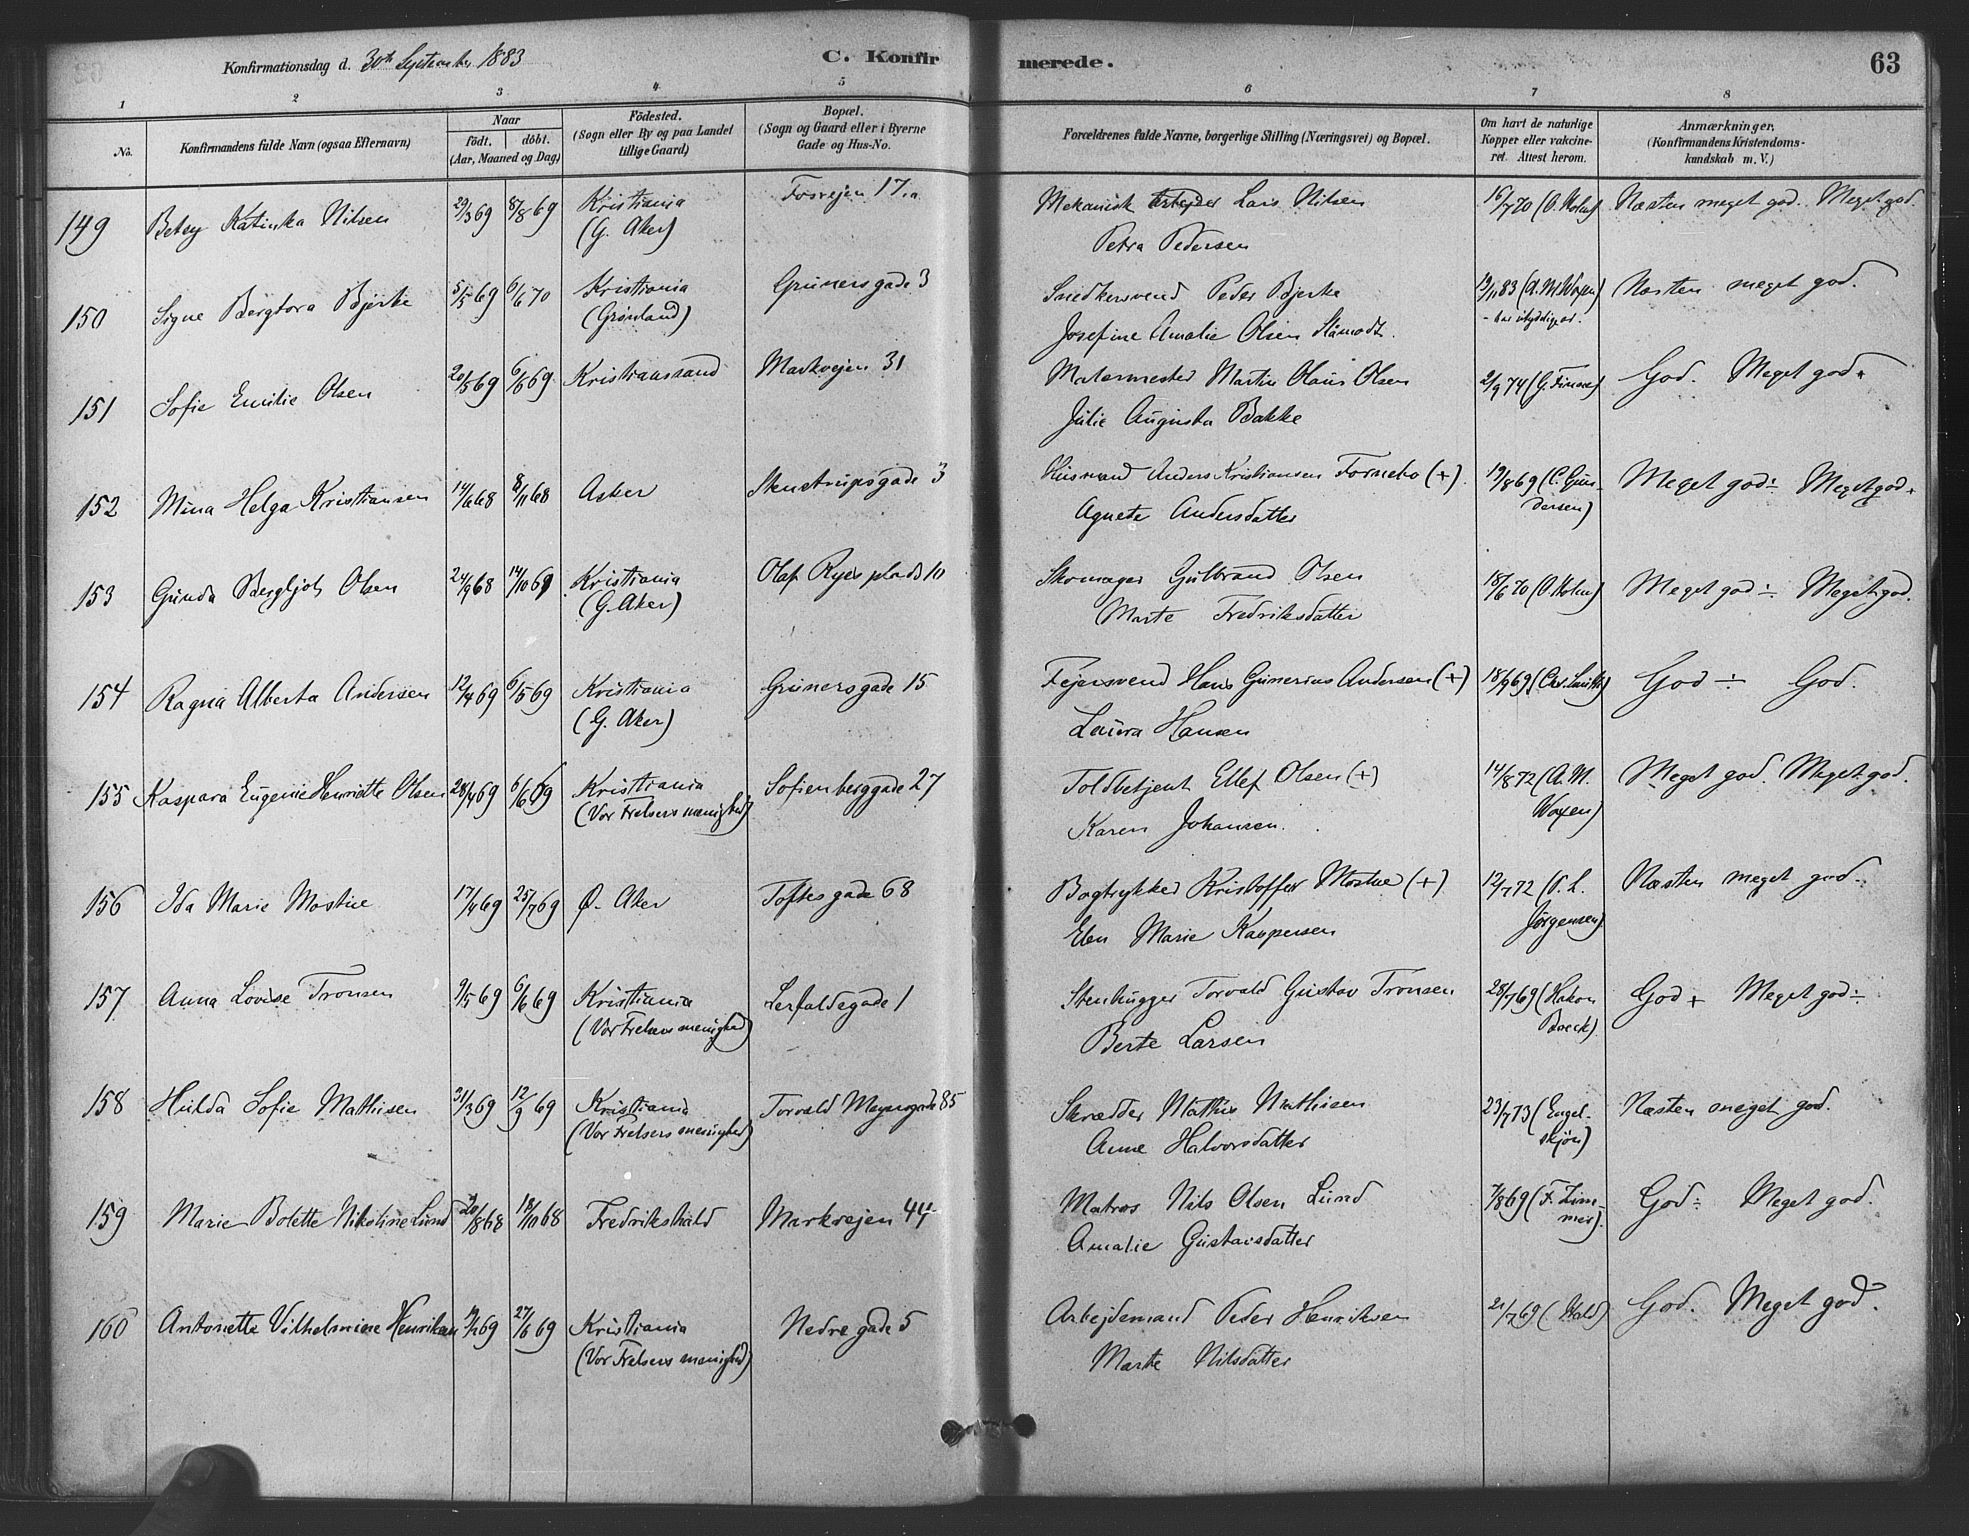 Konfirmationsdag d. 30th September 1883 C. Konfirmerede. 63
1 2 3 4 5 6 7 8
No. Konfirmandens fulde Navn (ogsaa Efternavn) Naar födt. döbt. (Aar, Maaned og Dag) Födested. (Sogn eller By og paa Landet tillige Gaard) Bopæl. (Sogn og Gaard eller i Byerne Gade og Hus-No. Forældrenes fulde Navne, borgerlige Stilling (Næringsvei) og Bopæl. Om havt de naturlige Kopper eller vakcineret. Attest herom. Anmærkninger. (Konfirmandens Kristendomskundskab m. V.)
149 Betsy Katinka Nilsen 29/3 69 8/8 69 Kristiania Fosvejen 17a Mekanisk arbejder Lars Nilsen 16/7 70 (O. Holm) Næsten meget god. Meget god.
(G. Aker) Petra Pedersen
150 Signe Bergtora Bjerke 5/5 69 6/6 70 Kristiania Grünersgade 3 Snedkersvend Peder Bjerke 19/1 83 (A. M. Woxen) Næsten meget god.
(Grönland) Josefine Amalie Olsen
151 Sofie Emilie Olsen 20/5 69 6/6 69 Kristianssand Markvejen 31 Malermester Martin Olaus Olsen 2/9 74 God. Meget god.
Julie Augusta Bakke
152 Mina Helga Kristiansen 14/6 68 8/11 68 Asker Stenstrupsgade 3 Husmand Anders Kristiansen Fornebo (+) 19/8 69 (C. Gun-
Agnete Andersdatter dersen) Meget god ÷ Meget god +
153 Gunda Bergljot Olsen 24/9 68 14/10 69 Kristiania Olaf Ryes plads 10 Skomager Gulbrand Olsen 18/6 70 (O. Holm) Meget god ÷ Meget god.
(G. Aker) Marte Fredriksdatter
154 Ragna Alberta Andersen 12/4 69 6/5 69 Kristiania Grünersgade 15 Fejersvend Hans Gunerius Andersen (+) 18/9 69 God ÷ God.
(G. Aker) Laura Hansen
155 Kaspara Eugenie Henriette Olsen 28/4 69 6/6 69 Kristiania Sofienberggade 27 Toldbetjent Ellef Olsen (+) 14/8 72 (A. M. Meget god. Meget god.
(Vor Frelsers menighed) Karen Johansen. Woxen)
156 Ida Marie Mostue 17/4 69 25/7 69 Ø. Aker Toftesgade 68 Bogtrykker Kristoffer Mostue (+) 12/7 72 (O. L. Næsten meget god.
Elen Marie Kaspersen Jørgensen)
157 Anna Lovise Tronsen 9/5 69 6/6 69 Kristiania Lerfaldsgade 1 Stenhugger Torvald Gustav Tronsen 28/7 69 (Hakon God + Meget god ÷
(Vor Frelsers menighed) Berte Larsen Boeck)
158 Hulda Sofie Mathisen 31/3 69 12/9 69 Kristiania Torvald Meyersgade 85 Skrædder Mathis Mathisen 23/7 73 (Engel- Næsten meget god.
(Vor Frelsers menighed) Anne Halvorsdatter skjøn)
159 Marie Bolette Nikoline Lund 20/8 68 18/10 68 Fredrikshald Markvejen 44 Matros Nils Olsen Lund 7/8 69 (F. Zim- God ÷ Meget god.
Amalie Gustavsdatter mer)
160 Antonette Vilhelmine Henriksen 27/6 69 Kristiania Nedregade 5 Arbejdsmand Peder Henriksen 21/7 69 (Wald) God. Meget god.
(Vor Frelsers menighed) Marte Nilsdatter